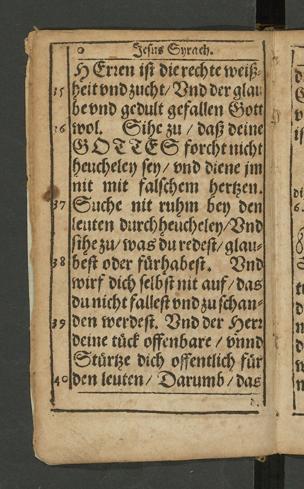 Jesus Syrach.
HErren ist die rechte weiß-
15 heit vnd zucht/ Vnd der glau
be vnd gedult gefallen Gott
16 wol. Sihe zu/ daß deine
GOTTES forcht nicht
heucheley sey/ vnd diene jm
nit mit falschem hertzen.
37 Suche nit ruhm bey den
leuten durch heucheley/ Vnd
sihe zu/ was du redest/ glau-
38 best oder fürhabest. Vnd
wirf dich selbst nit auf/ das
du nicht fallest vnd zu schan-
39 den werdest. Vnd der Herr
deine tück offenbare/ vnnd
Stürtze dich offentlich für
40 den leuten/ Darumb/ das